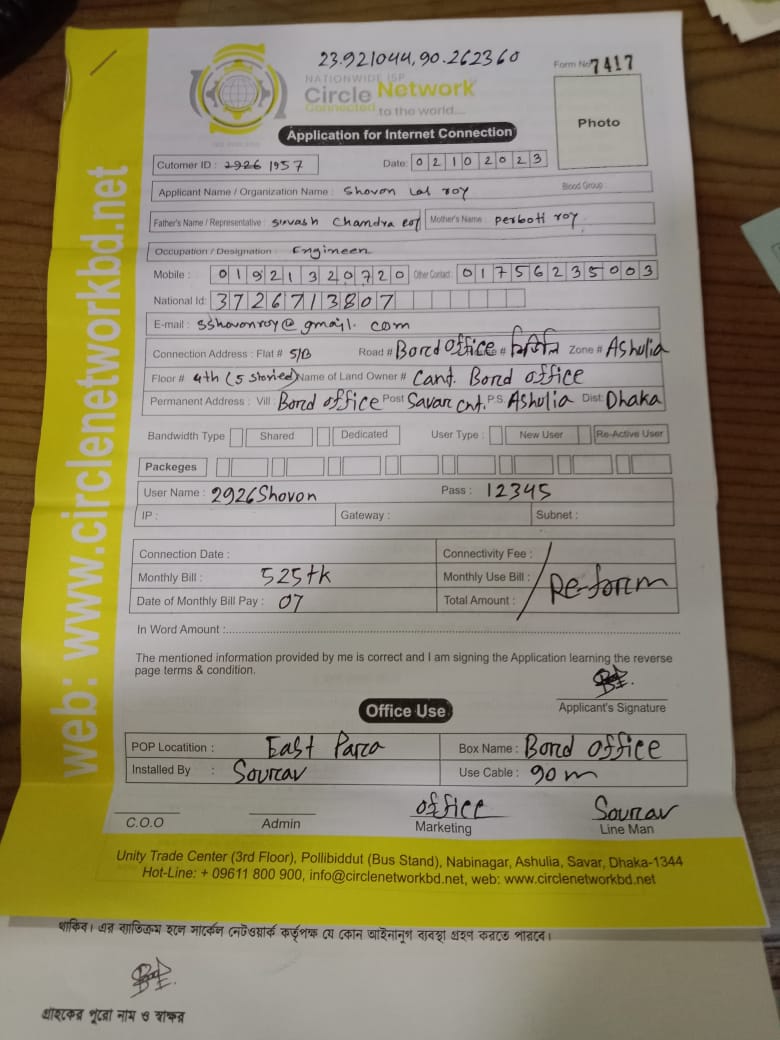 23.921044,90.262360
Form No 7417
NATIONWIDE ISP
Circle Network
Connected to the world....
Photo
Application for Internet Connection
Cutomer ID : 2926 1957 Date: 02102023
Applicant Name / Organization Name : Shovon Lal roy Blood Group :
Father's Name / Representative : Suvash Chandra roy Mother's Name : perboti roy
Occupation / Designation : Engineer
Mobile : 01921320720 Other Contact : 01756235003
National Id: 3726713807
E-mail : sshovonroy@gmail.com
Connection Address : Flat # 5/B Road # Bord office Zone # Ashulia
Floor # 4th (5 storied) Name of Land Owner # Cant. Bord office
Permanent Address : Vill : Bord office Post Savar Cnt. P.S Ashulia Dist: Dhaka
Bandwidth Type Shared Dedicated User Type : New User Re-Active User
Packeges
User Name : 2926Shovon Pass : 12345
IP : Gateway : Subnet :
Connection Date : Connectivity Fee :
Monthly Bill : 525tk Monthly Use Bill : Re-form
Date of Monthly Bill Pay : 07 Total Amount :
In Word Amount :
The mentioned information provided by me is correct and I am signing the Application learning the reverse
page terms & condition.
Applicant's Signature
Office Use
POP Locatition : East Para Box Name : Bord office
Installed By : Sourav Use Cable : 90m
office Sourav
C.O.O Admin Marketing Line Man
Unity Trade Center (3rd Floor), Pollibiddut (Bus Stand), Nabinagar, Ashulia, Savar, Dhaka-1344
Hot-Line: + 09611 800 900, info@circlenetworkbd.net, web: www.circlenetworkbd.net
web: www.circlenetworkbd.net
থাকিব। এর ব্যতিক্রম হলে সার্কেল নেটওয়ার্ক কর্তৃপক্ষ যে কোন আইনানুগ ব্যবস্থা গ্রহণ করতে পারবে।
গ্রাহকের পুরো নাম ও স্বাক্ষর